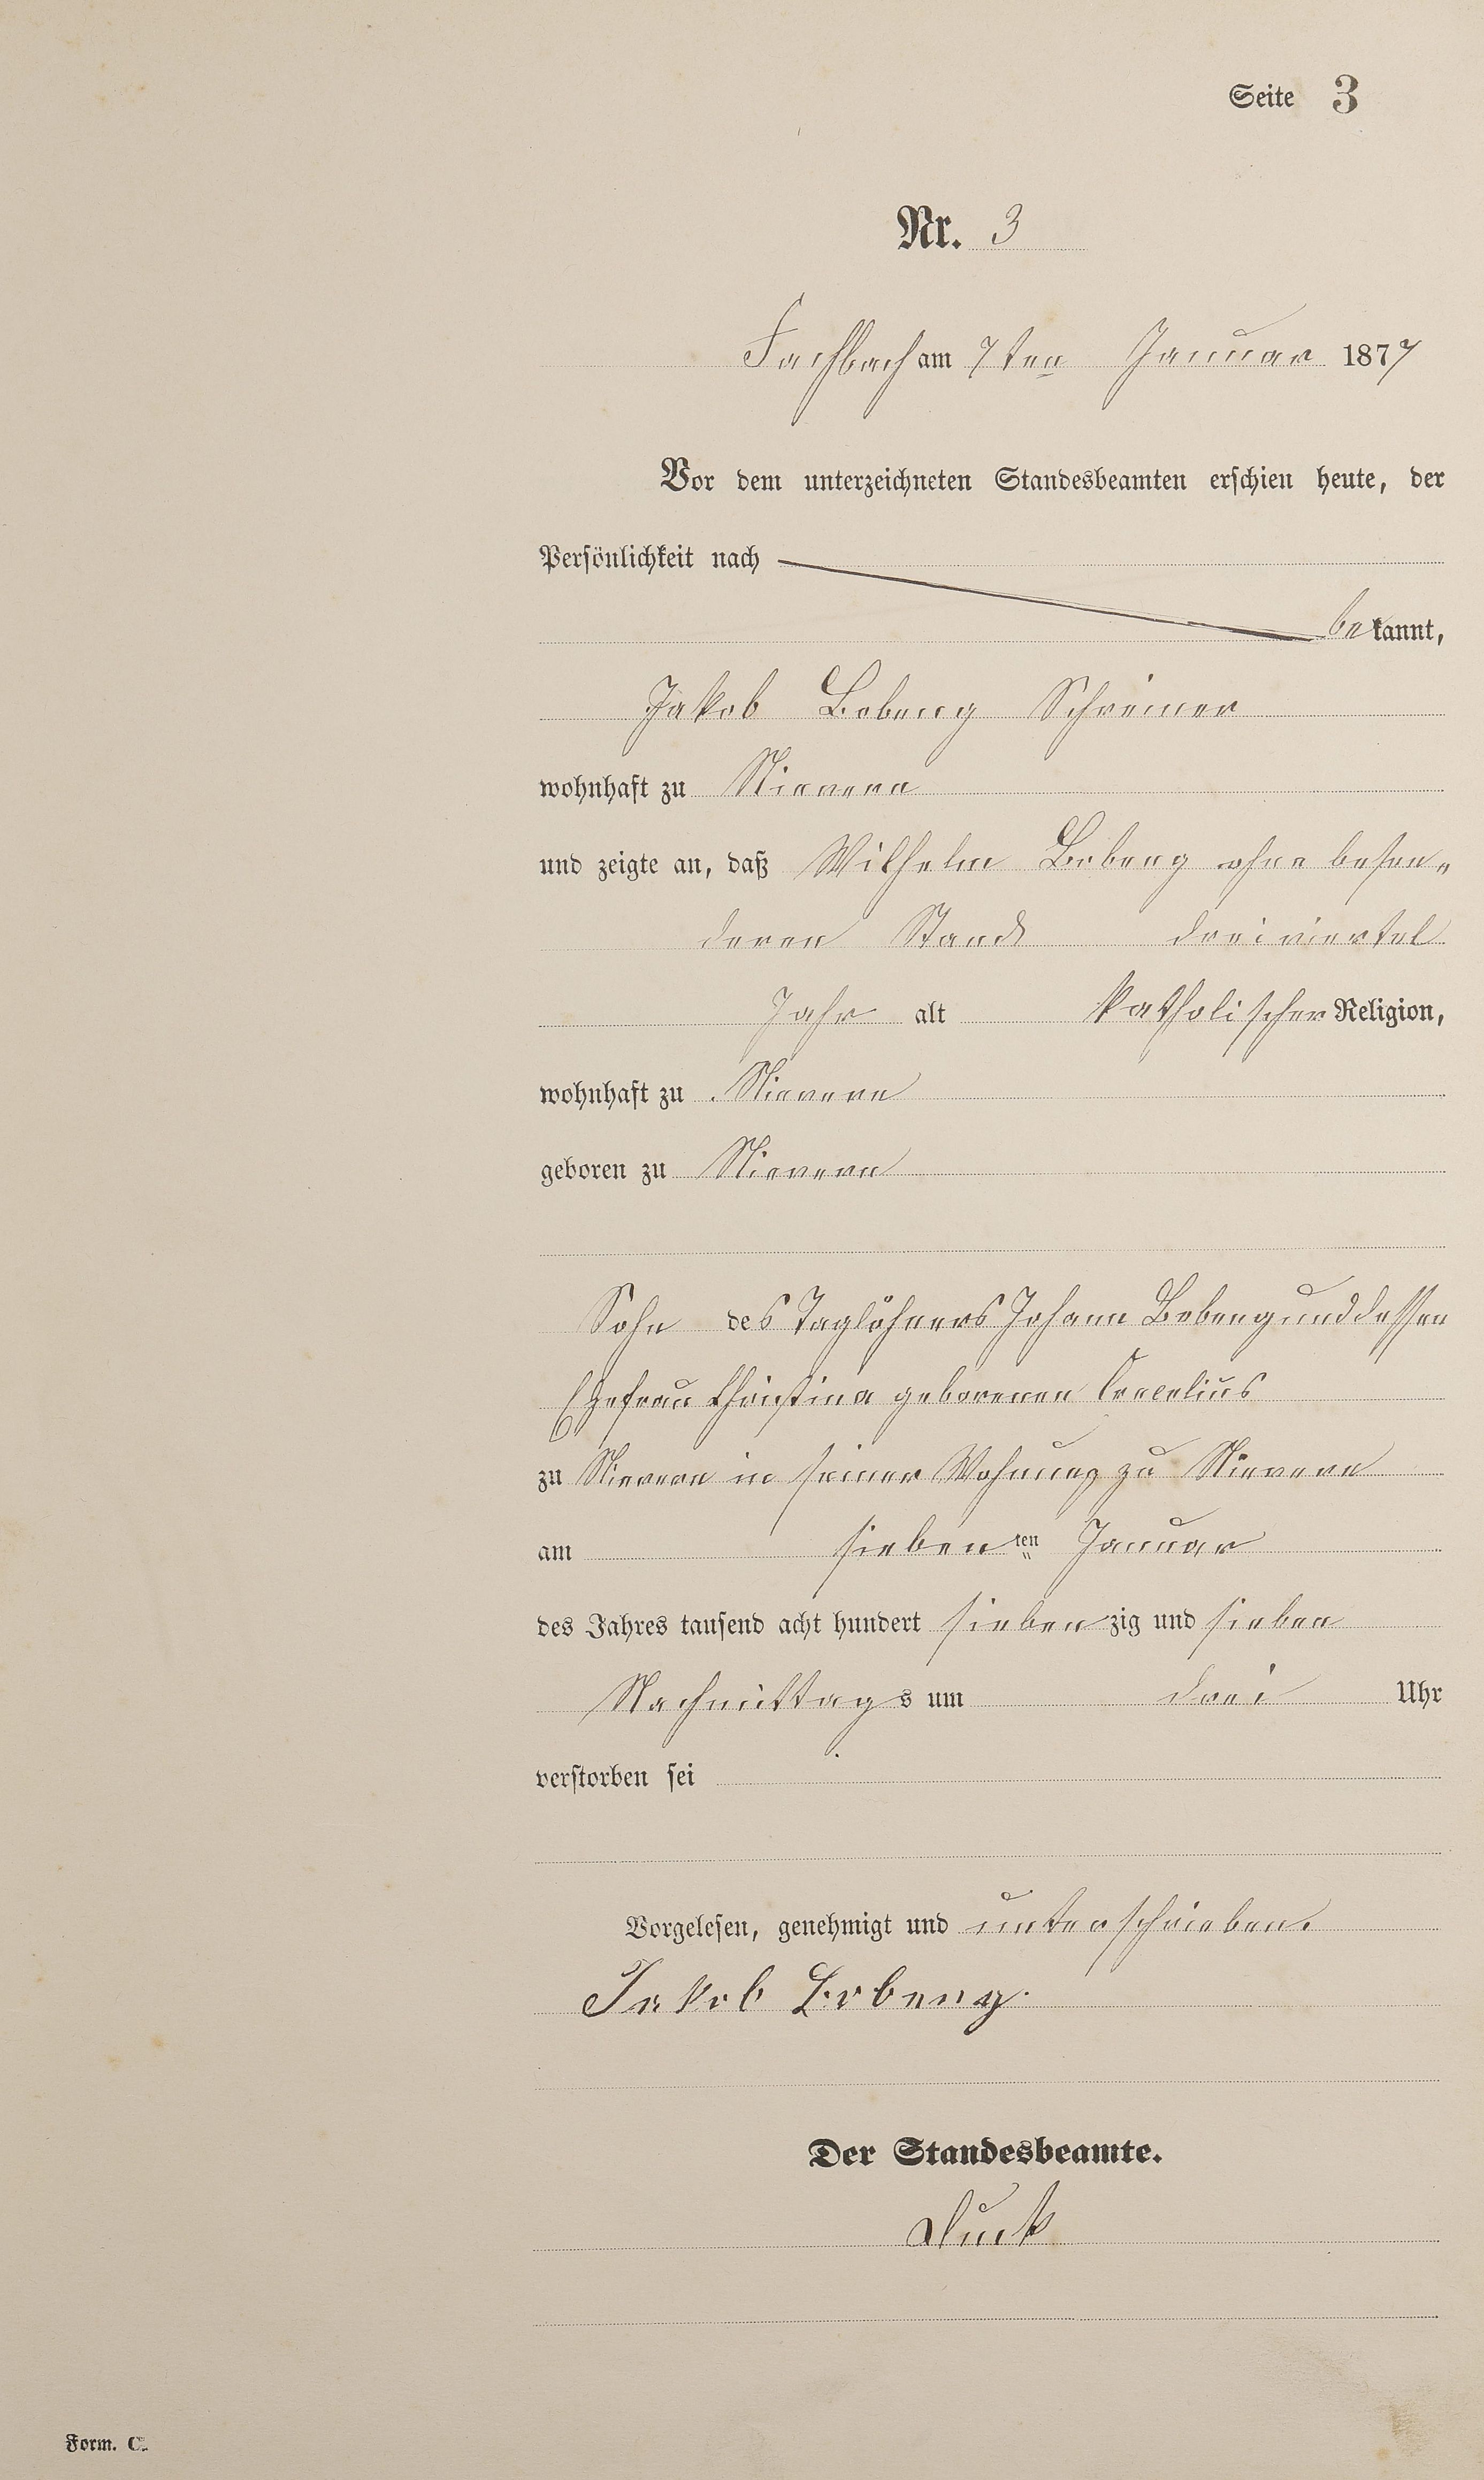 Seite 3
Nr. 3
Fachbach am 7ten Januar 1877
Vor dem unterzeichneten Standesbeamten erschien heute, der
Persönlichkeit nach
bekannt,
Jakob Bobeng Schreiner
wohnhaft zu Nievern
und zeigte an, daß Wilhelm Bobeng ohne beson-
deren Stand dreiviertel
Jahr alt katholischer Religion,
wohnhaft zu Nievern
geboren zu Nievern
Sohn des Taglöhners Johann Bobeng und dessen
Ehefrau Christina geborenen
zu Nievern in seiner Wohnung zu Nievern
am siebenten Januar
des Jahres tausend acht hundert siebenzig und sieben
Nachmittags um drei Uhr
verstorben sei
Vorgelesen, genehmigt und unterschrieben.
Jakob Bobeng.
Der Standesbeamte.
Form. C.